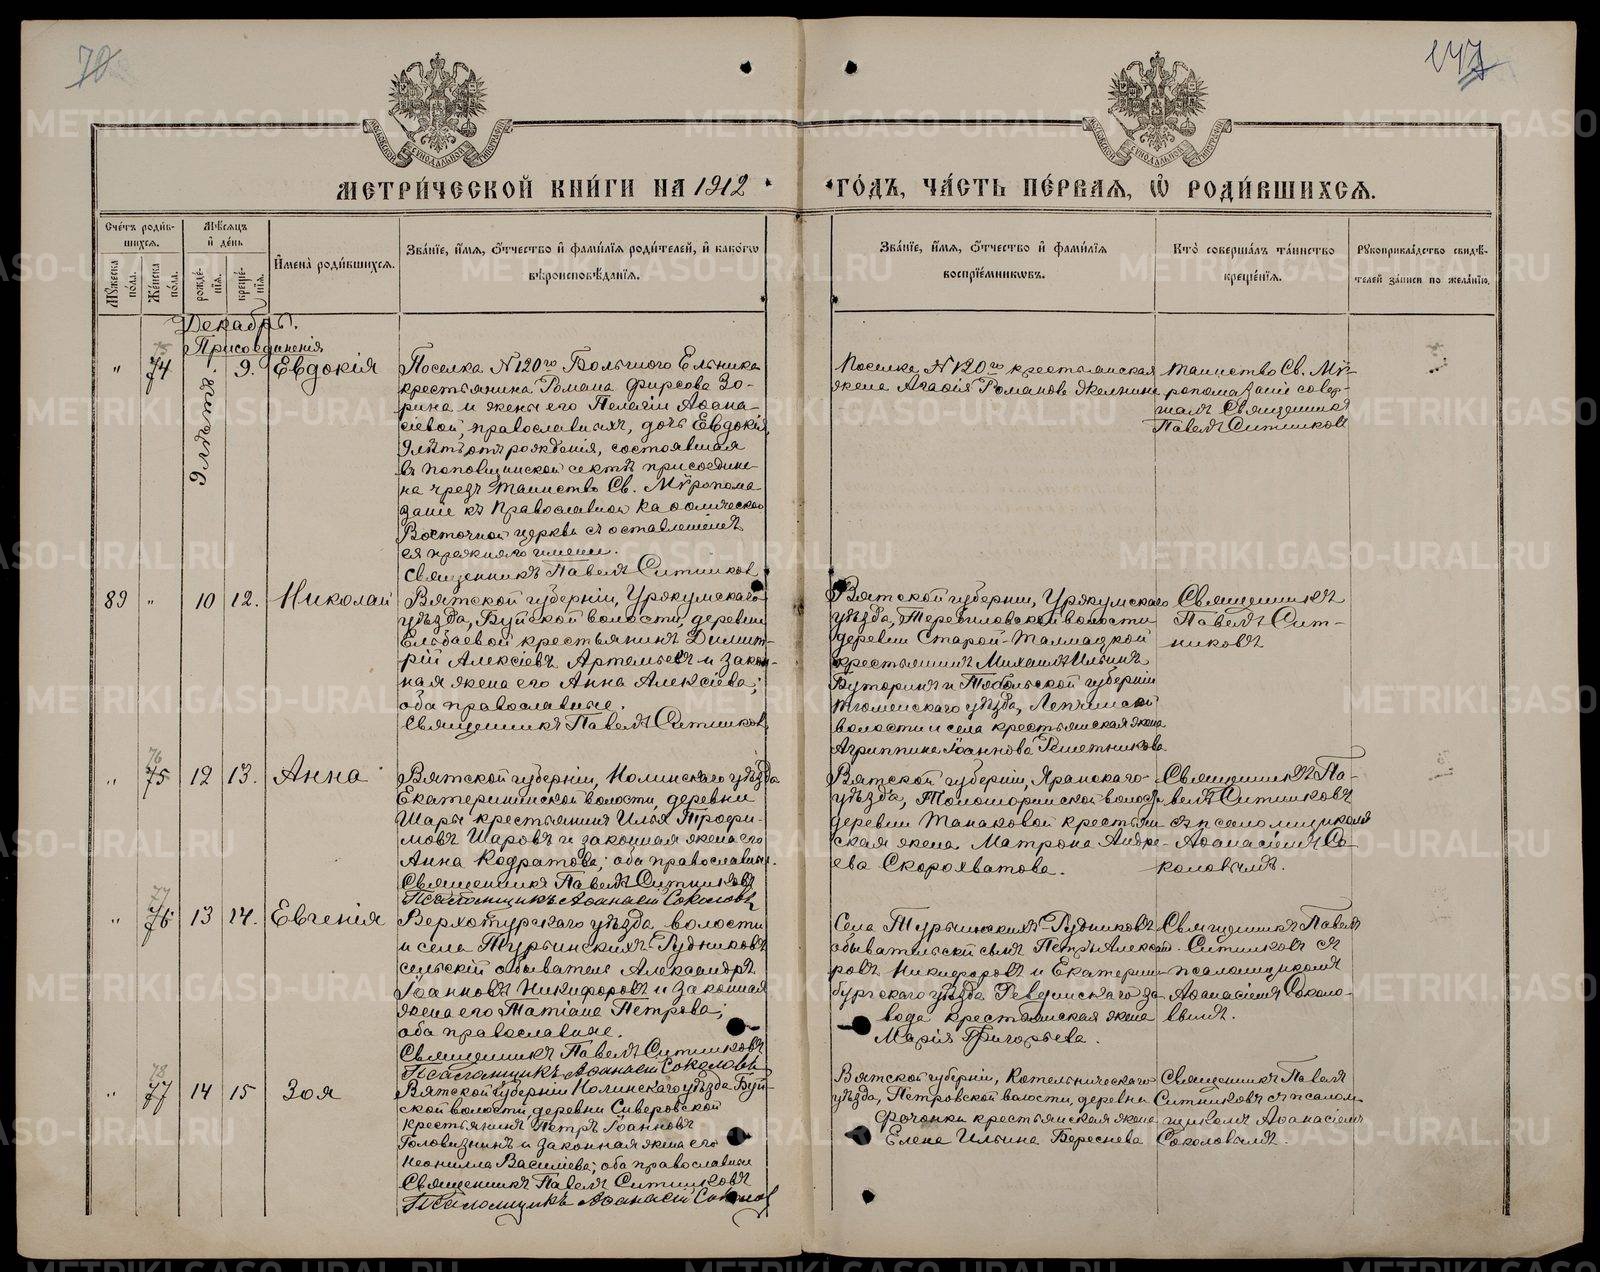 70
147
МЕТРИ́ЧЕСКОЙ КНИ́ГИ НА 1912
ГО́ДЪ, ЧА́СТЬ ПЕ́РВАЯ, Ѡ҆ РОДИ́ВШИХСЯ.
Сче́тъ роди́в-
шихся.
Мѣ́сяцъ
и҆ де́нь
Мꙋ́жеска по́ла.
Же́нска по́ла.
рожде́-
нїя.
креще́-
нїя.
И҆мена̀ роди́вшихся.
Зва́нїе, и҆́мя, ѻ҆́тчество и҆ фами́лїя роди́телей, и҆ како́гѡ
вѣроисповѣ́данїя.
Зва́нїе, и҆́мя, ѻ҆́тчество и҆ фами́лїя
воспрїе́мникѡвъ.
Кто̀ соверша́лъ та́инство
креще́нїя.
Рꙋкоприкла́дство свидѣ́-
телей за́писи по жела́нїю.
Декабрь.
Присоединенія
„ 75 74 9 лѣтъ 9. Евдокія
Поселка N 120го Большого Ельника
крестьянина Романа Фирсова Зо-
рина и жены его Пелагіи Аѳана-
сіевой, православныхъ, дочь Евдокія,
9 лѣтъ отъ рожденія, состоявшая
въ поповщинской сектѣ присоедине-
на чрезъ Таинство Св. Мѵропома-
заніе къ Православной Каѳолической
Восточной церкви съ оставленіемъ
ея прежняго имени.
Священникъ Павелъ Ситниковъ
Поселка N 120го крестьянская
жена Агафія Романова
Таинство Св. Мѵ-
ропомазаніе совер-
шалъ Священникъ
Павелъ Ситниковъ
89 „ 10 12. Николай
Вятской губерніи, Уржумскаго
уѣзда, Буйской волости, деревни
Елбаевой крестьянинъ Димит-
рій Алексіевъ Артемьевъ и закон-
ная жена его Анна Алексіева;
оба православные.
Священникъ Павелъ Ситниковъ
Вятской губерніи, Уржумскаго
уѣзда, волости
деревни Старой-
крестьянинъ Михаилъ Ильинъ
Буторинъ и Тобольской губерніи
Тюменскаго уѣзда,
волости и села крестьянская жена
Агриппина Іоаннова Решетникова
Священникъ
Павелъ Сит-
никовъ
„ 76 75 12 13. Анна
Вятской губерніи, Нолинскаго уѣзда
Екатерининской волости, деревни
Шары крестьянинъ Илья Трофи-
мовъ Шаровъ и законная жена его
Анна Кодратова; оба православные.
Священникъ Павелъ Ситниковъ
Псаломщикъ Аѳанасій Соколовъ
Вятской губерніи, Яранскаго
уѣзда, волости
деревни Танаковой крестьян-
ская жена Матрона Андре-
ева Скорохватова.
Священникъ Па-
велъ Ситниковъ
съ псаломщикомъ
Аѳанасіемъ Со-
коловымъ.
„ 77 76 13 14. Евгенія
Верхотурскаго уѣзда волости
и села Турьинскихъ-Рудниковъ
сельскій обыватель Александръ
Іоанновъ Никифоровъ и законная
жена его Татіана Петрова;
оба православные.
Священникъ Павелъ Ситниковъ
Псаломщикъ Аѳанасій Соколовъ
Села Турьинскихъ-Рудниковъ
обывательскій сынъ Петръ Александ-
ровъ Никифоровъ и Екатерин-
бургскаго уѣзда Ревдинскаго за-
вода крестьянская жена
Марія Григорьева.
Священникъ Павелъ
Ситниковъ съ
псаломщикомъ
Аѳанасіемъ Соколо-
вымъ.
„ 78 77 14 15 Зоя
Вятской губерніи Нолинскаго уѣзда Буй-
ской волости, деревни Сиверовской
крестьянинъ Петръ Іоанновъ
Головизнинъ и законная жена его
Неонилла Василіева; оба православные
Священникъ Павелъ Ситниковъ
Псаломщикъ Аѳанасій Соколовъ
Вятской губерніи, Котельническаго
уѣзда, Петровской волости, деревни
крестьянская жена
Елена Ильина Береснева
Священникъ Павелъ
Ситниковъ съ псалом-
щикомъ Аѳанасіемъ
Соколовымъ.